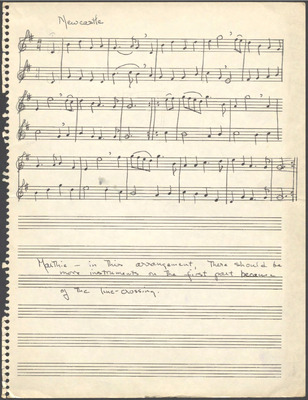 Newcastle
Matthie - in this arrangement, there should be
more instruments on the first part because
of the line-crossing.